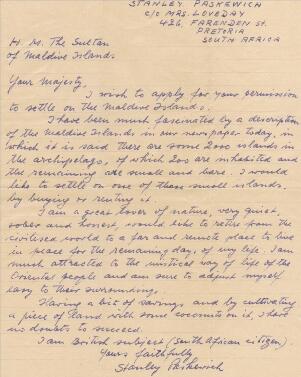 STANLEY PASKEWICH
C/O MRS. LOVEDAY
426, FARENDEN St.
PRETORIA
SOUTH AFRICA
H. M. The Sultan
of Maldive Islands
Your Majesty,
I wish to apply for your permission
to settle on the Maldive Islands.
I have been much fascinated by a description
of the Maldive Islands in our newspaper today, in
which it is said there are some 2000 islands in
the archipelago, of which 200 are inhabited and
the remaining are small and bare. I would
like to settle on one of these small islands,
by buying or renting it.
I am a great lover of nature, very quiet,
sober and honest, would like to retire from the
civilised world to a far and remote place to live
in peace for the remaining days of my life. I am
much attracted to the mistical way of life of the
Oriental people and am sure to adjust myself
easy to their surrounding.
Having a bit of savings and by cultivating
a piece of land with some coconuts on it, I have
no doubts to succeed.
I am British subject (South African citizen).
Yours faithfully
Stanley Paskewich